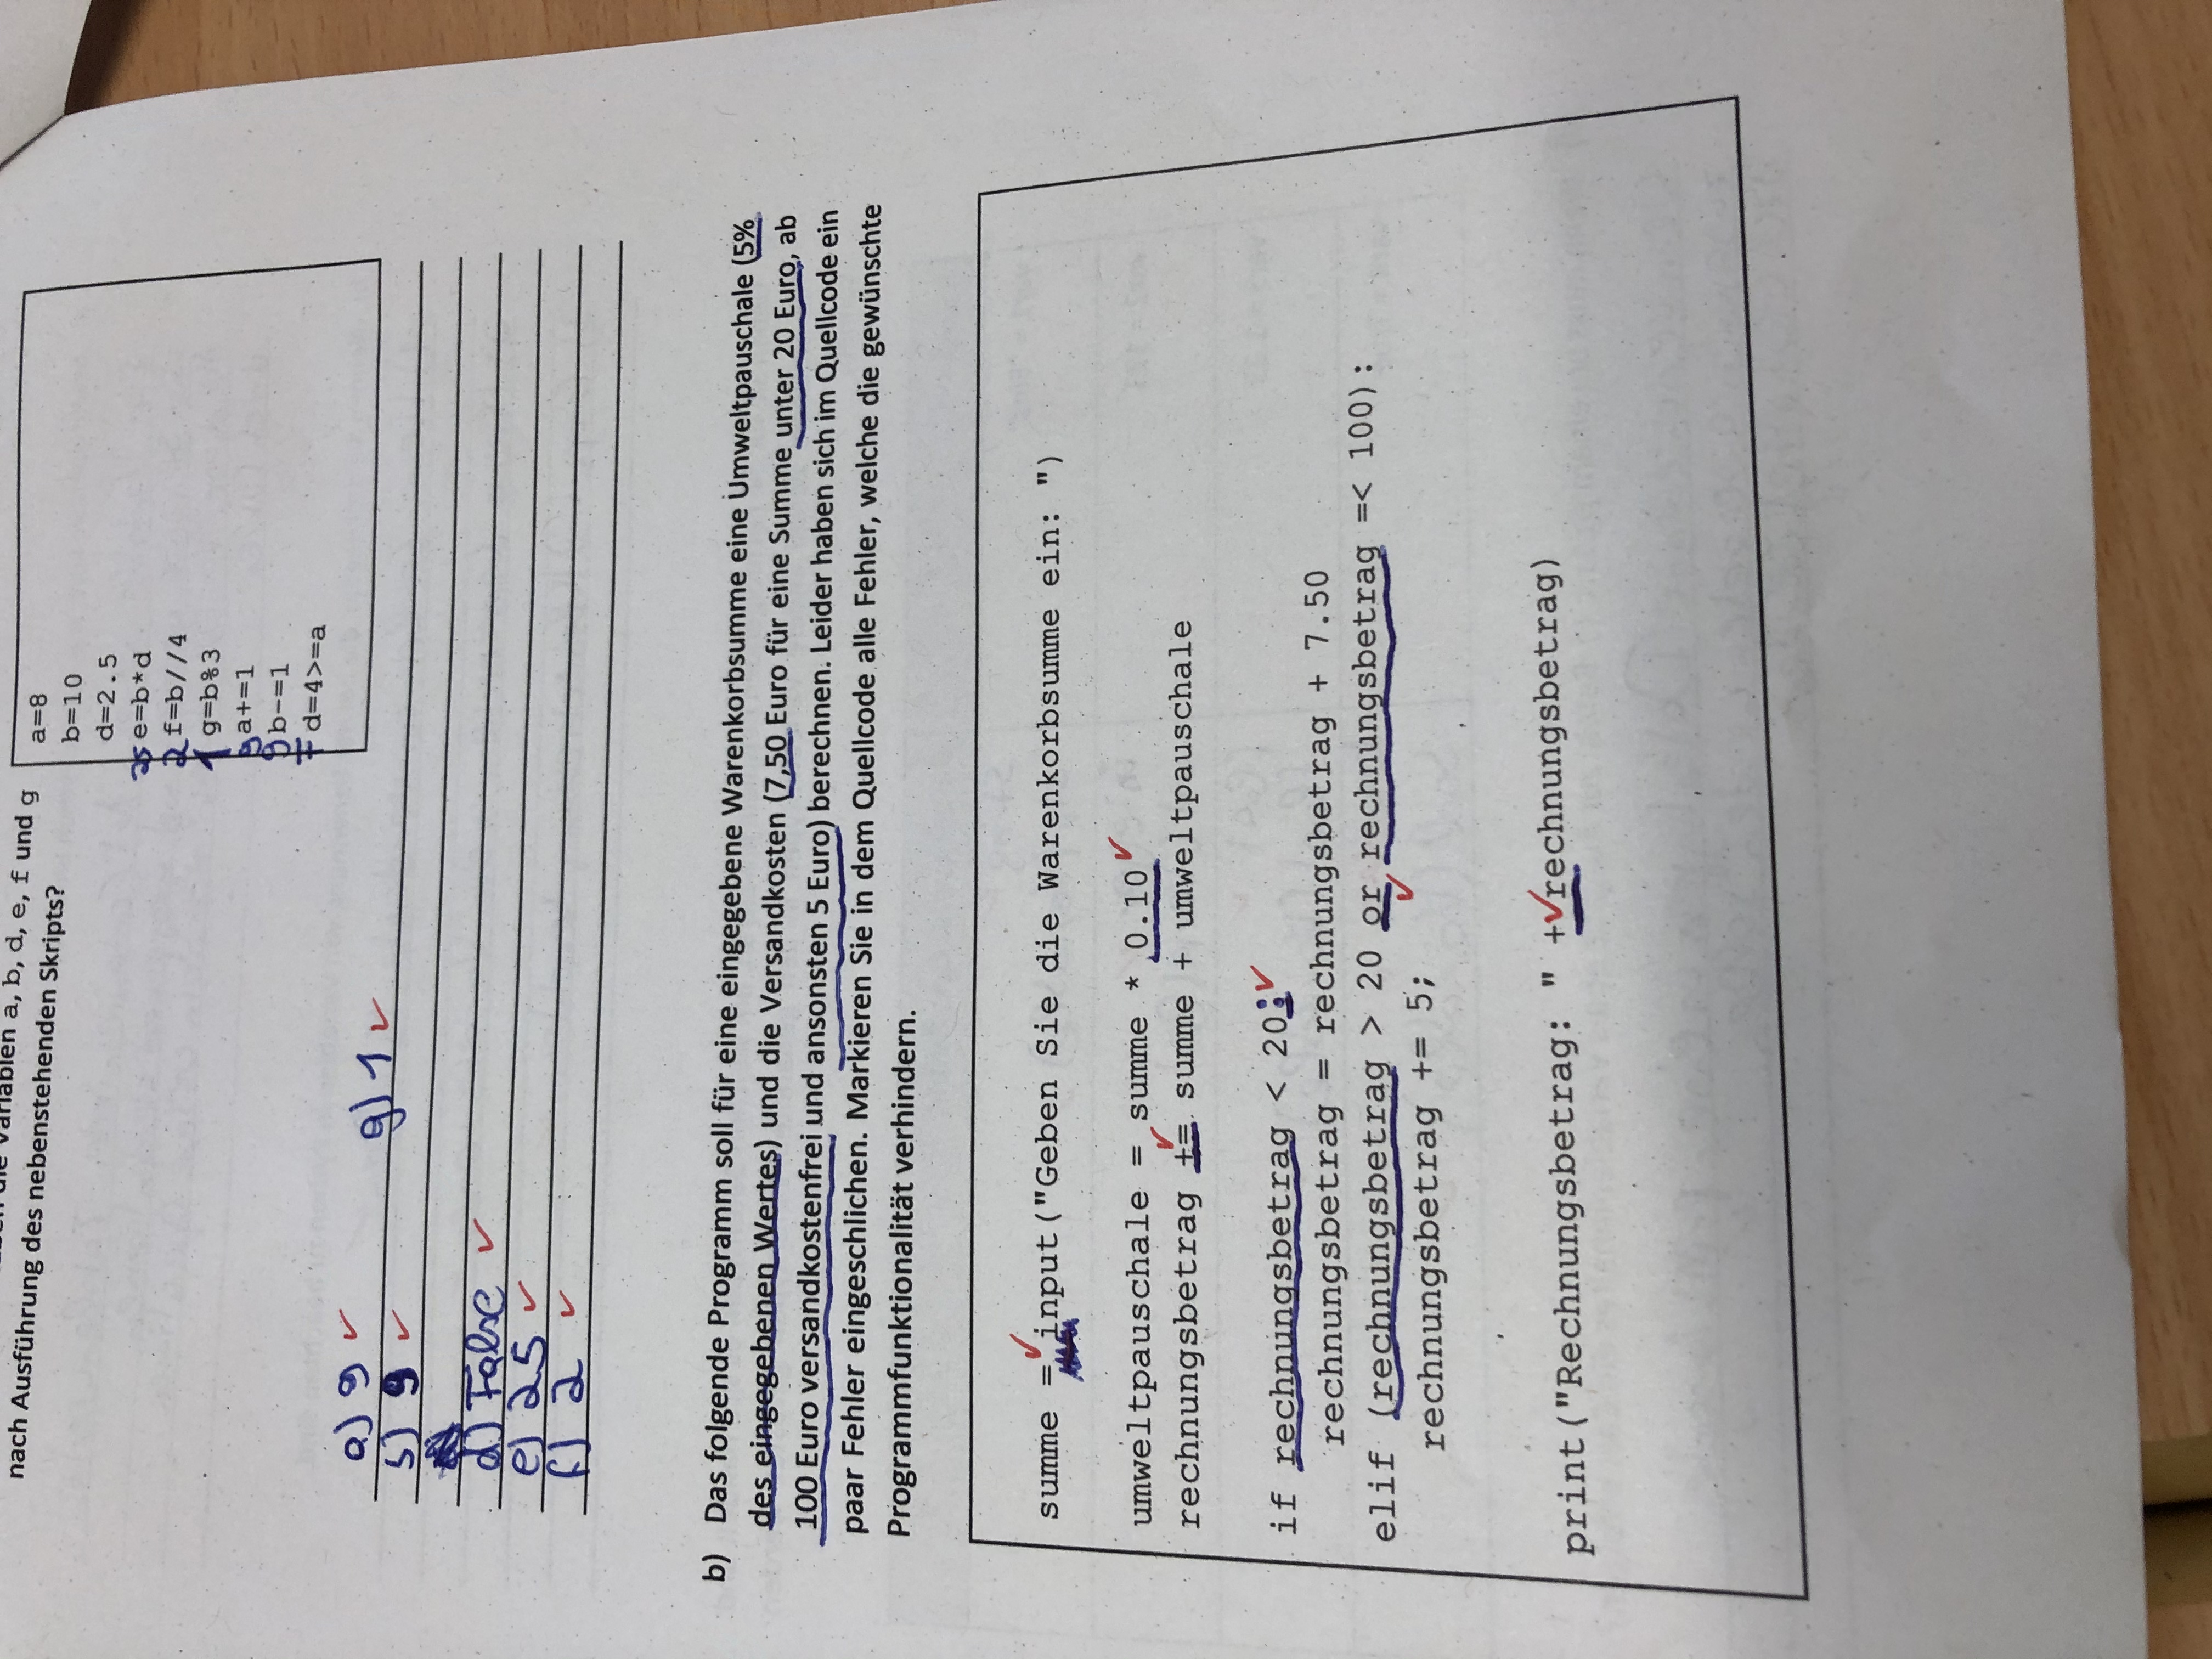 die Variablen a, b, d, e, f und g
nach Ausführung des nebenstehenden Skripts?
a=8
b=10
d=2.5
25 e=b*d
2 f=b//4
1 g=b%3
9 a+=1
9 b-=1
F d=4>=a
a) 9 ✓
g) 1 ✓
b) 9 ✓
d) False ✓
e) 25 ✓
f) 2 ✓
b) Das folgende Programm soll für eine eingegebene Warenkorbsumme eine Umweltpauschale (5%
des eingegebenen Wertes) und die Versandkosten (7,50 Euro für eine Summe unter 20 Euro, ab
100 Euro versandkostenfrei und ansonsten 5 Euro) berechnen. Leider haben sich im Quellcode ein
paar Fehler eingeschlichen. Markieren Sie in dem Quellcode alle Fehler, welche die gewünschte
Programmfunktionalität verhindern.
summe = input("Geben Sie die Warenkorbsumme ein: ")
umweltpauschale = summe * 0.10
rechnungsbetrag += summe + umweltpauschale
if rechnungsbetrag < 20;
rechnungsbetrag = rechnungsbetrag + 7.50
elif (rechnungsbetrag > 20 or rechnungsbetrag =< 100):
rechnungsbetrag += 5;
print("Rechnungsbetrag: " + rechnungsbetrag)